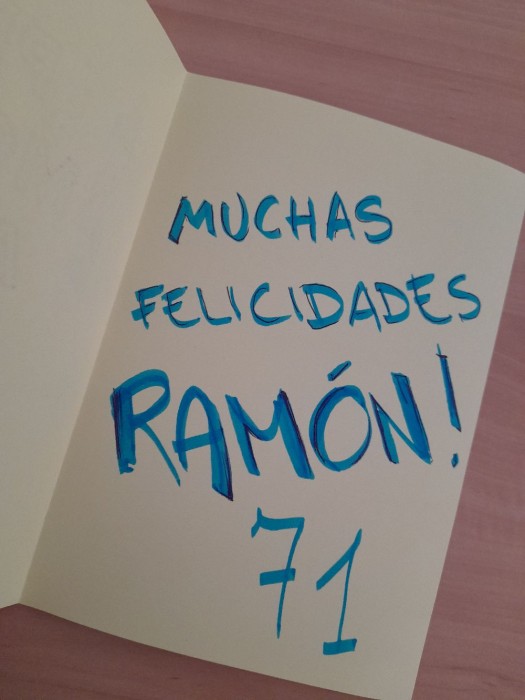 MUCHAS
FELICIDADES
RAMÓN!
71